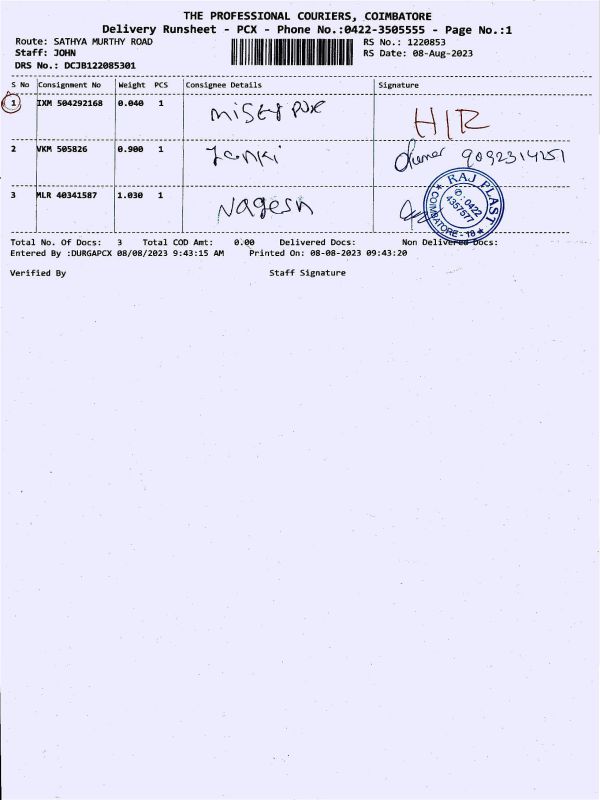 THE PROFESSIONAL COURIERS, COIMBATORE
Delivery Runsheet - PCX - Phone No.:0422-3505555 - Page No.:1
Route: SATHYA MURTHY ROAD RS No.: 1220853
Staff: JOHN RS Date: 08-Aug-2023
DRS No.: DCJB122085301
S No Consignment No Weight PCS Consignee Details Signature
1 IXM 504292168 0.040 1 H/R
2 VKM 505826 0.900 1 Janki 9092314251
3 MLR 40341587 1.030 1 Nagesh
RAJ PLAST
✆: 0422
4357577
COIMBATORE - 18
Total No. Of Docs: 3 Total COD Amt: 0.00 Delivered Docs: Non Delivered Docs:
Entered By :DURGAPCX 08/08/2023 9:43:15 AM Printed On: 08-08-2023 09:43:20
Verified By Staff Signature